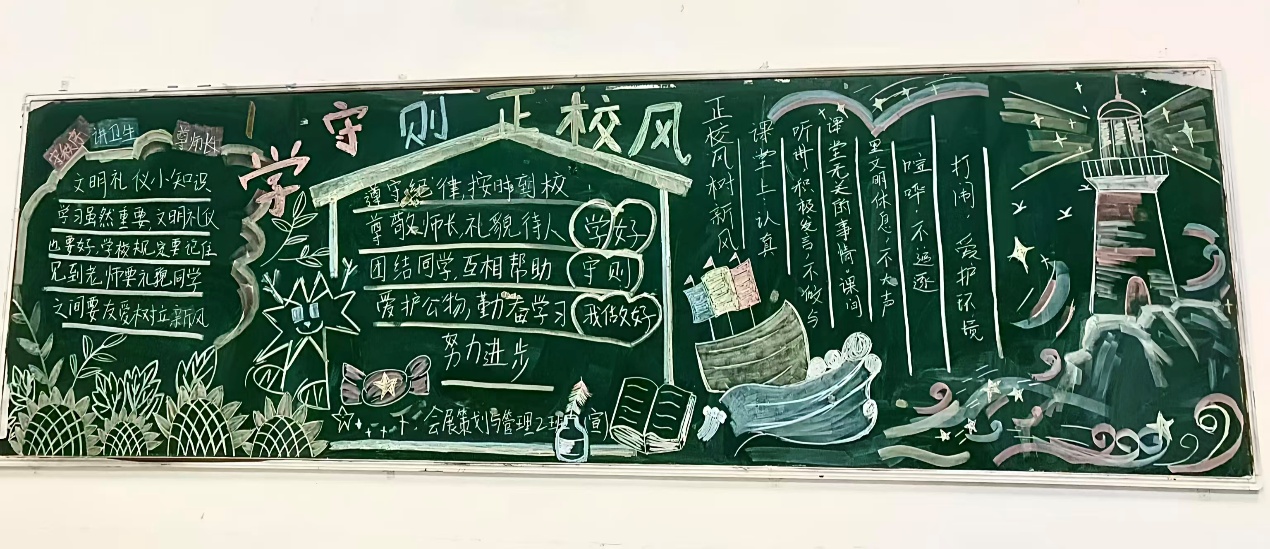 学守则正校风
守秩序
讲卫生
尊师长
文明礼仪小知识
学习虽然重要,文明礼仪
也要好,学校规定要记住
见到老师要礼貌同学
之间要友爱树立新风
遵守纪律,按时到校
尊敬师长,礼貌待人
团结同学,互相帮助
爱护公物,勤奋学习
努力进步
学好
守则
我做好
会展策划与管理2班(宣)
正校风树新风
课堂上,认真
听讲,积极发言,不做与
课堂无关的事情,课间
文明休息,不大声
喧哗,不追逐
打闹,爱护环境